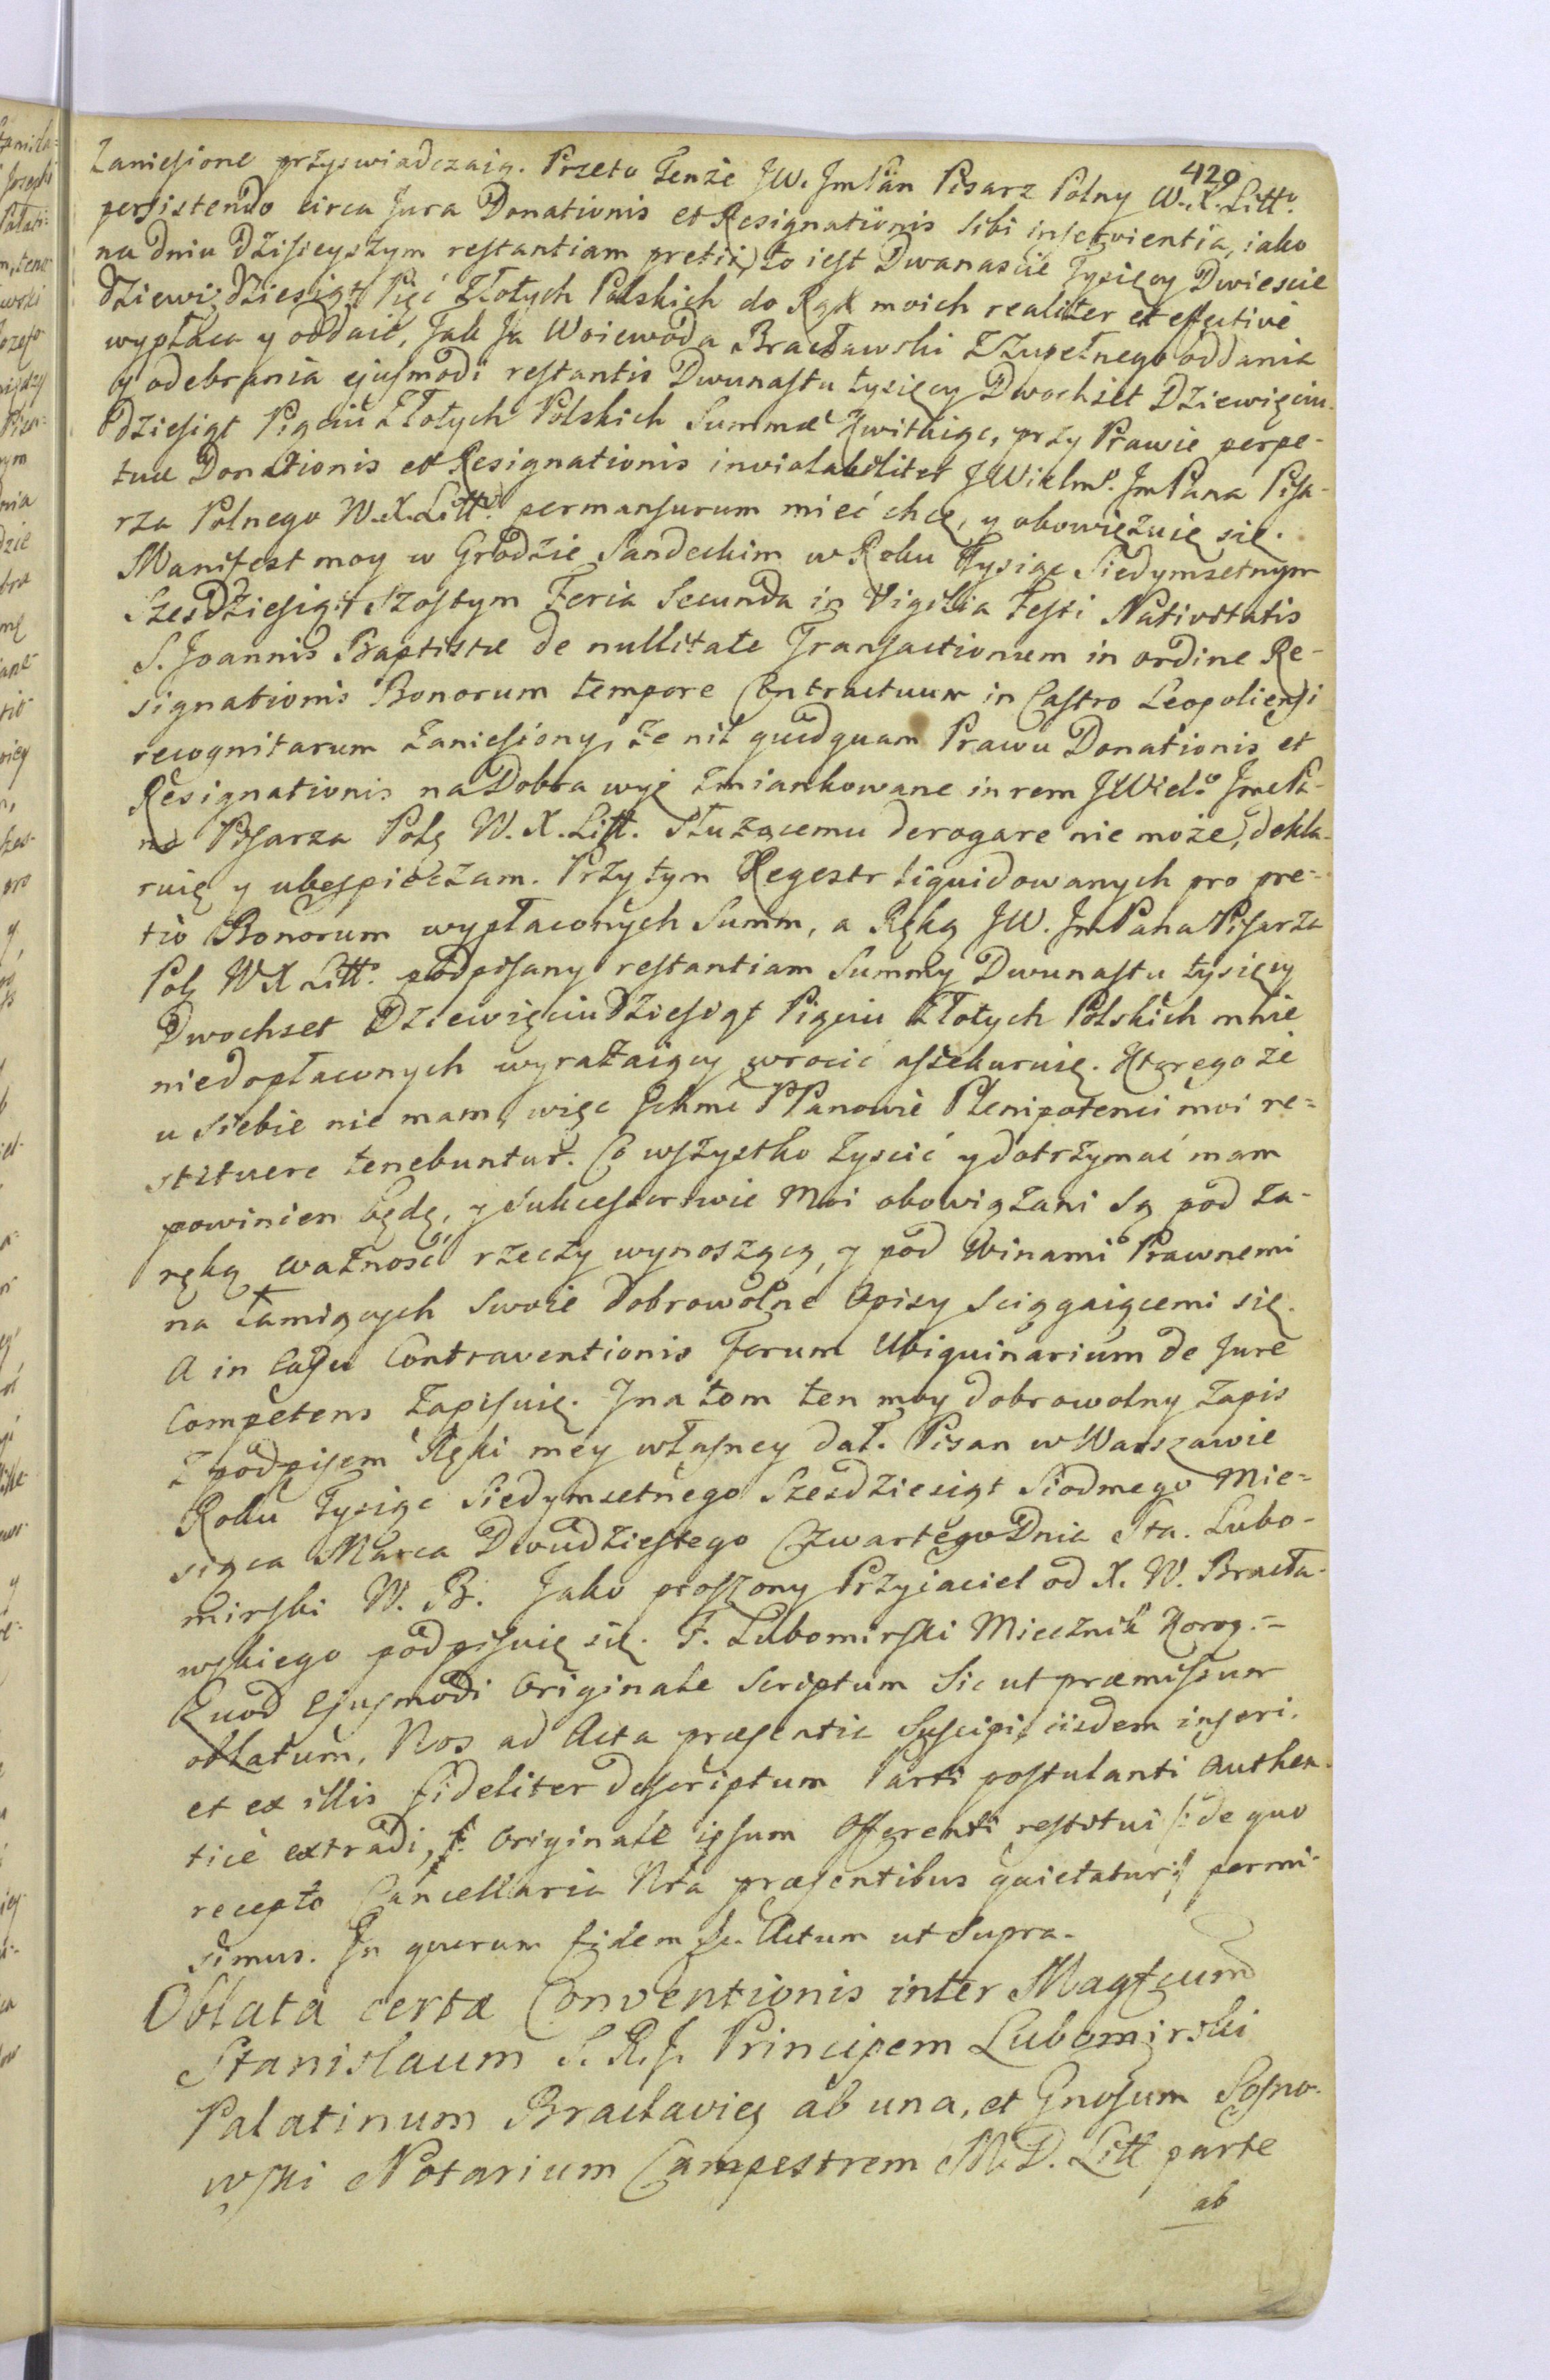 420
zaniesione przyswiadczaią. Przeto Tenże JW. JmPan Pisarz Polny W.X.Litt.º
persistendo circa Jura Donationis et Resignationis sibi inservientia, iako
na dniu dzisieyszym restantiam pretii, to iest Dwanascie Tysięcy Dwiescie
dziewiędziesiąt Pięć Złotych Polskich do Rąk moich realiter et effective
wypłaca y oddaie, Tak Ja Woiewoda Bracławski Zzupełnego oddania
y odebrania ejusmodi restantis Dwunastu tysięcy Dwochset Dziewięciu-
dziesiąt Pięciu Złotych Polskich Summæ kwituiąc, przy Prawie perpe-
tuæ Donationis et Resignationis inviolabiliter JWielmº. JmPana Pisa-
rza Polnego W.X.Littº. permansurum mieć chcę, y obowięzuię się.
Manifest moy w Grodzie Sandeckim w Roku Tysiąc Siedymsetnym
Szesdziesiąt Szostym Feria Secunda in Vigilia Festi Nativitatis
S. Joannis Baptistæ de nullitate Transactionum in ordine Re-
signationis Bonorum tempore Contractuum in Castro Leopoliensi
recognitarum zaniesiony, że nil quidquam Prawu Donationis et
Resignationis na Dobra wyż zmiankowane in rem JWielº JmcPa-
na Pisarza Polg W.X.Litt. służącemu derogare nie może, dekla-
ruię y ubespieczam. Przytym Regestr liquidowanych pro pre-
tio Bonorum wypłaconych Summ, a Ręką JW. JmPana Pisarza
Polg WX Littº. podpisany restantiam Summy Dwunastu tysięcy
Dwochset Dziewięciudziesiąt Pięciu Złotych Polskich mnie
niedopłaconych wyrażaiący wrocić assekuruię. Ktorego że
u siebie nie mam, więc Ichmć PPanowie Plenipotenci moi re-
stituere tenebuntur. Co wszystko zyscić y dotrzymać mam
powinien będę, y Sukcessorowie Moi obowiązani są pod za-
ręką ważność rzeczy wynoszącą, y pod Winami Prawnemi
na łamiących swoie dobrowolne Opisy sciągaiącemi się.
A in Casu Contraventionis Forum Ubiquinarium de Jure
Competens zapisuię. Jna tom ten moy dobrowolny zapis
z podpisem Ręki mey własney dał. Pisan w Warszawie
Roku Tysiąc Siedymsetnego Szesdziesiąt Siodmego Mie-
siąca Marca Dwudziestego Czwartego Dnia Sta. Lubo-
mirski W. B. Jako proszony Przyiaciel od X. W. Bracła-
wskiego podpisuię się. F. Lubomirski Miecznik Korog.
Quod Ejusmodi Originale Scriptum Sic ut præmissum
oblatum, Nos ad Acta præsentia Suscipi, iisdem inseri,
et ex illis fideliter descriptum Parti postulanti Authen-
ticè extradi, Originale ipsum Offerenti restitui /: de quo
recepto Cancellaria Nra præsentibus quietatur :/ permi-
simus. In quorum fidem &c. Actum ut Supra.
Oblata certæ Conventionis inter Magfcum
Stanislaum S.R.J. Principem Lubomirski
Palatinum Braclavieg ab una, et Gnosum Sosno-
wski Notarium Campestrem M.D. Litt parte
ab